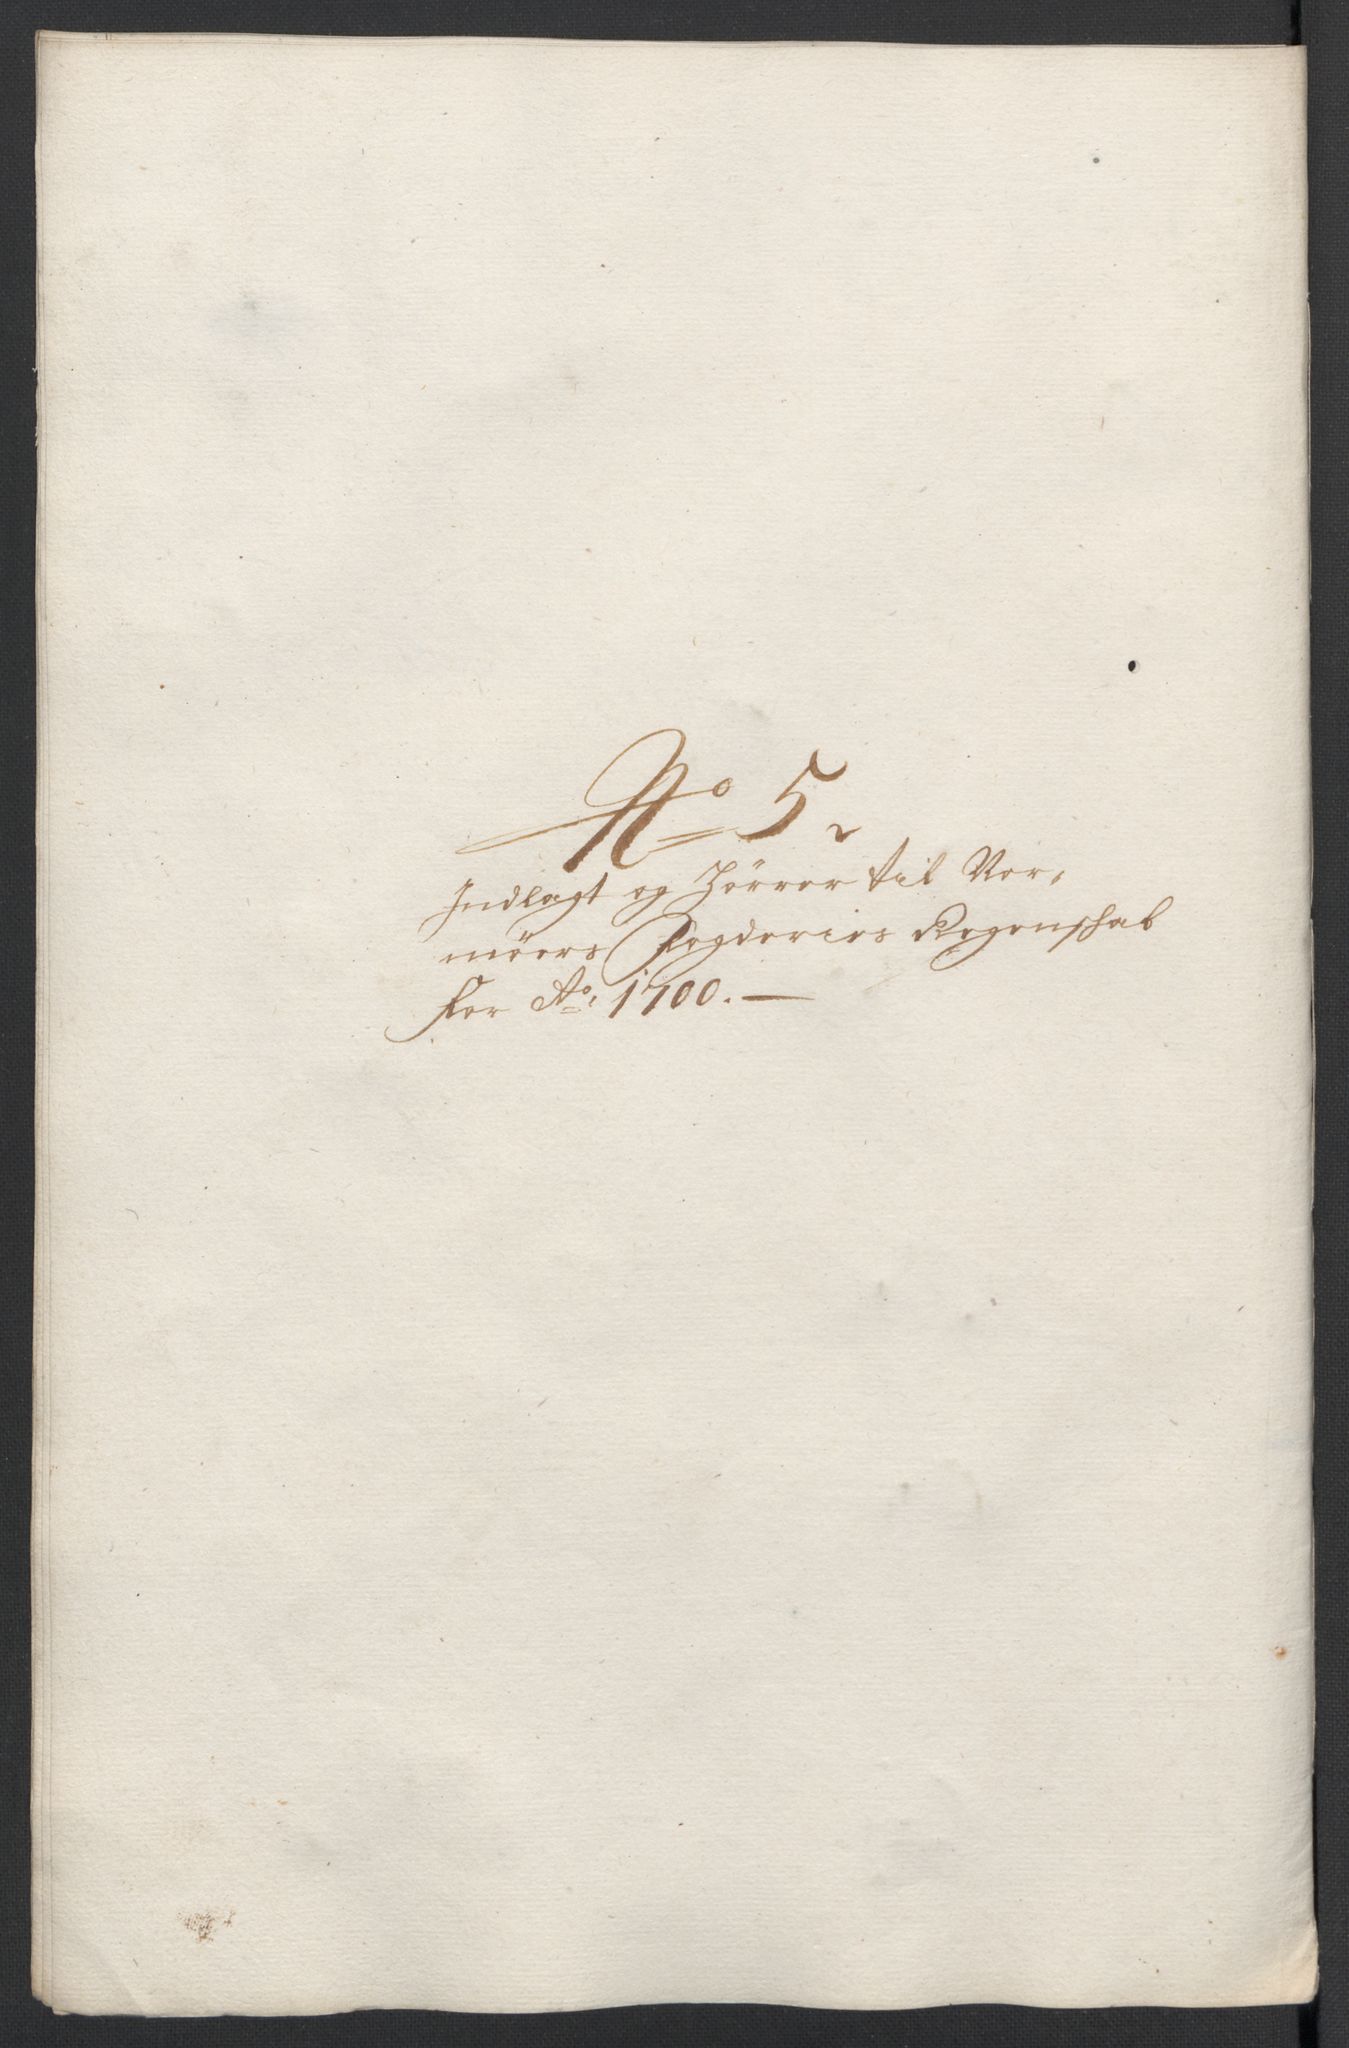 No 5
Indlagt og Hörrer til Nor,
möers Fogderies Regenschab
for Ao, 1700.—